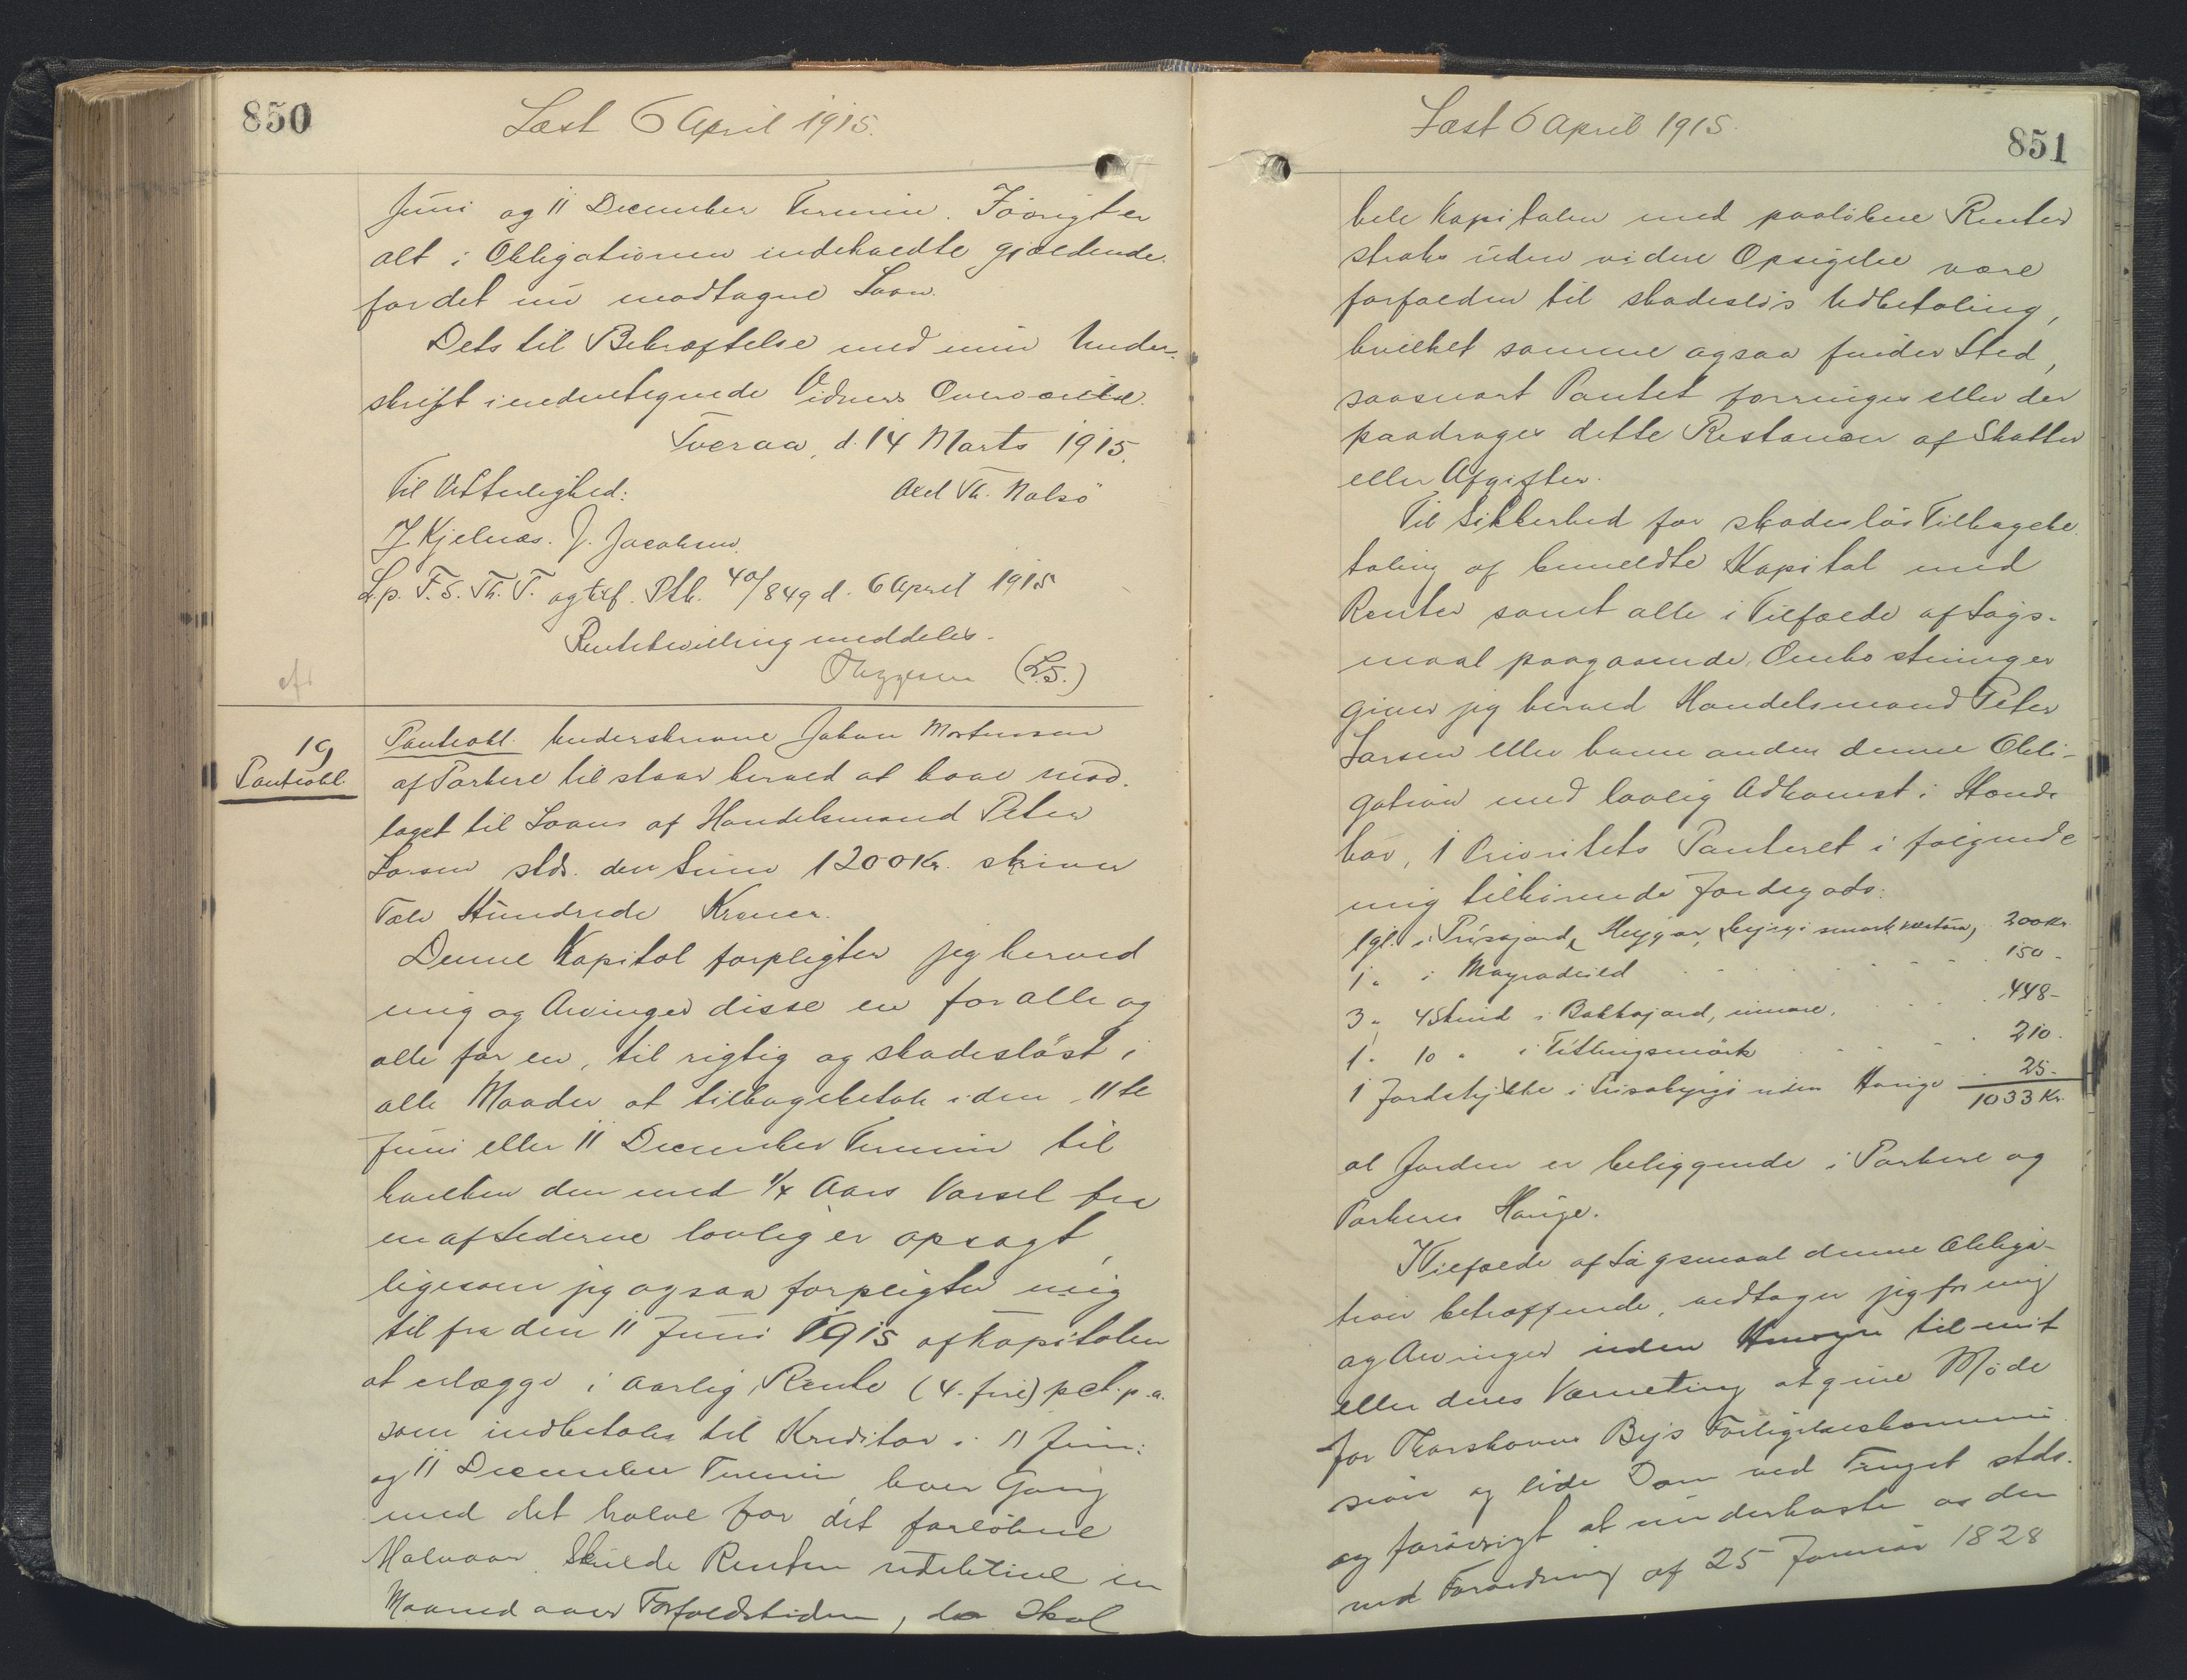 850
Læst 6 April 1915.
Juni og 11 December Termin. Iövrigt er
alt i Obligationen indeholdte gjældende
for det nu modtagne Laan.
Dets til Bekræftelse med min Under-
skrift i undertegnede Vidners Overværelse.
Tveraa, d. 14 Marts 1915.
Til Vitterlighed: Axel Th. Nolsö
J. Kjelnæs. J. Jacobsen
L.p. F. S. Th. T. og tilf. Ptb. 40/849 d. 6 April 1915
Rentebevilling meddeles.
(L.S.)
19
Panteobl.
Panteobl. Underskrevne Johan Mortensen
af Porkere tilstaar herved at have mod-
taget til Laans af Handelsmand Peter
Larsen stds. den Sum 1200 Kr. skriver
Tolv Hundrede Kroner.
Denne Kapital forpligter jeg herved
mig og Arvinger disse en for alle og
alle for en, til rigtig og skadesløst i
alle Maader at tilbagebetale i den 11te
Juni eller 11 December Termin til
hvilken den med 1/4 Aars Varsel fra
en af Siderne lovlig er opsagt,
ligesom jeg ogsaa forpligter mig
til fra den 11 Juni 1915 af Kapitalen
at erlægge i aarlig Rente (4. fire) pct. p.a.
som indbetales til Kreditor i 11 Juni
og 11 December Termin hver Gang
med det halve for det forløbne
Halvaar. Skulde Renten udeblive en
Maaned over Forfaldstiden, da skal
851
Læst 6 April 1915.
hele Kapitalen med paaløbne Renter
straks uden videre Opsigelse være
forfalden til skadesløs Udbetaling,
hvilket samme ogsaa finder Sted,
saasnart Pantet forringes eller der
paadrages dette Restancer af Skatter
eller Afgifter.
Til Sikkerhed for skadesløs Tilbagebe-
taling af bemeldte Kapital med
Renter samt alle i Tilfælde af Søgs-
maal paagaaende Omkostninger
giver jeg herved Handelsmand Peter
Larsen eller hvem anden denne Obli-
gation med lovlig Adkomst i Hænde
har, 1 Prioritets Panteret i følgende
mig tilhørende Jordegods:
1 gl. i 200 Kr.
1 " i 150 -
3 " 4 Skind i Bakkajard, innare, 448 -
1 " 10 " i Titlingsmörk 210 -
1 Jordstykke i uden Hauge 25 -
1033 Kr.
al Jorden er beliggende i Porkere og
Porkeres Hauge.
I Tilfælde af Søgsmaal denne Obliga-
tion betræffende, vedtager jeg for mig
og Arvinger uden Hensyn til mit
eller deres Værneting at give Møde
for Thorshavns Bys Forligelseskommis-
sion og lide Dom ved Tinget stds.
og forøvrigt at underkaste os den
ved Forordning af 25 Januar 1828